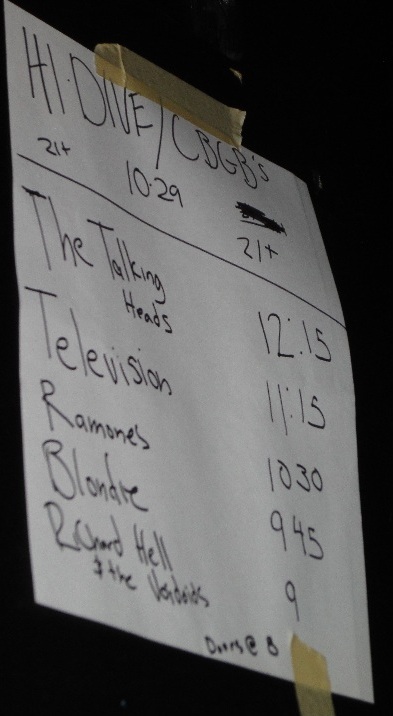 HI·DIVE/CBGB's
21+ 10·29 21+
The Talking Heads 12:15
Television 11:15
Ramones 1030
Blondie 945
Richard Hell & the Voidoids 9
Doors @ 8